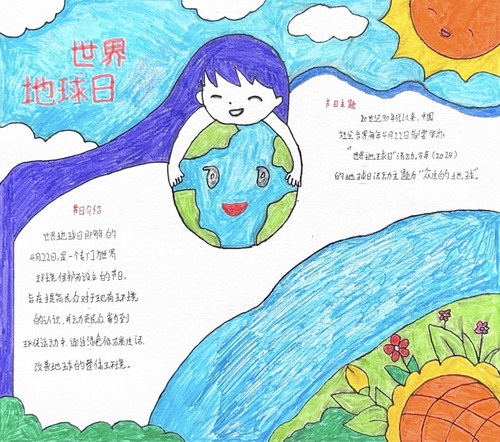 世界
地球日
节日主题
20世纪90年代以来,中国
社会各界每年4月22日都要举办
"世界地球日"活动,今年(2024)
的地球日活动主题为"众生的地球"。
节日介绍
世界地球日即每年的
4月22日,是一个专门为世界
环境保护而设立的节日,
旨在提高民众对于现有环境
的认识,并动员民众参与到
环保运动中,通过绿色低碳生活,
改善地球的整体环境。